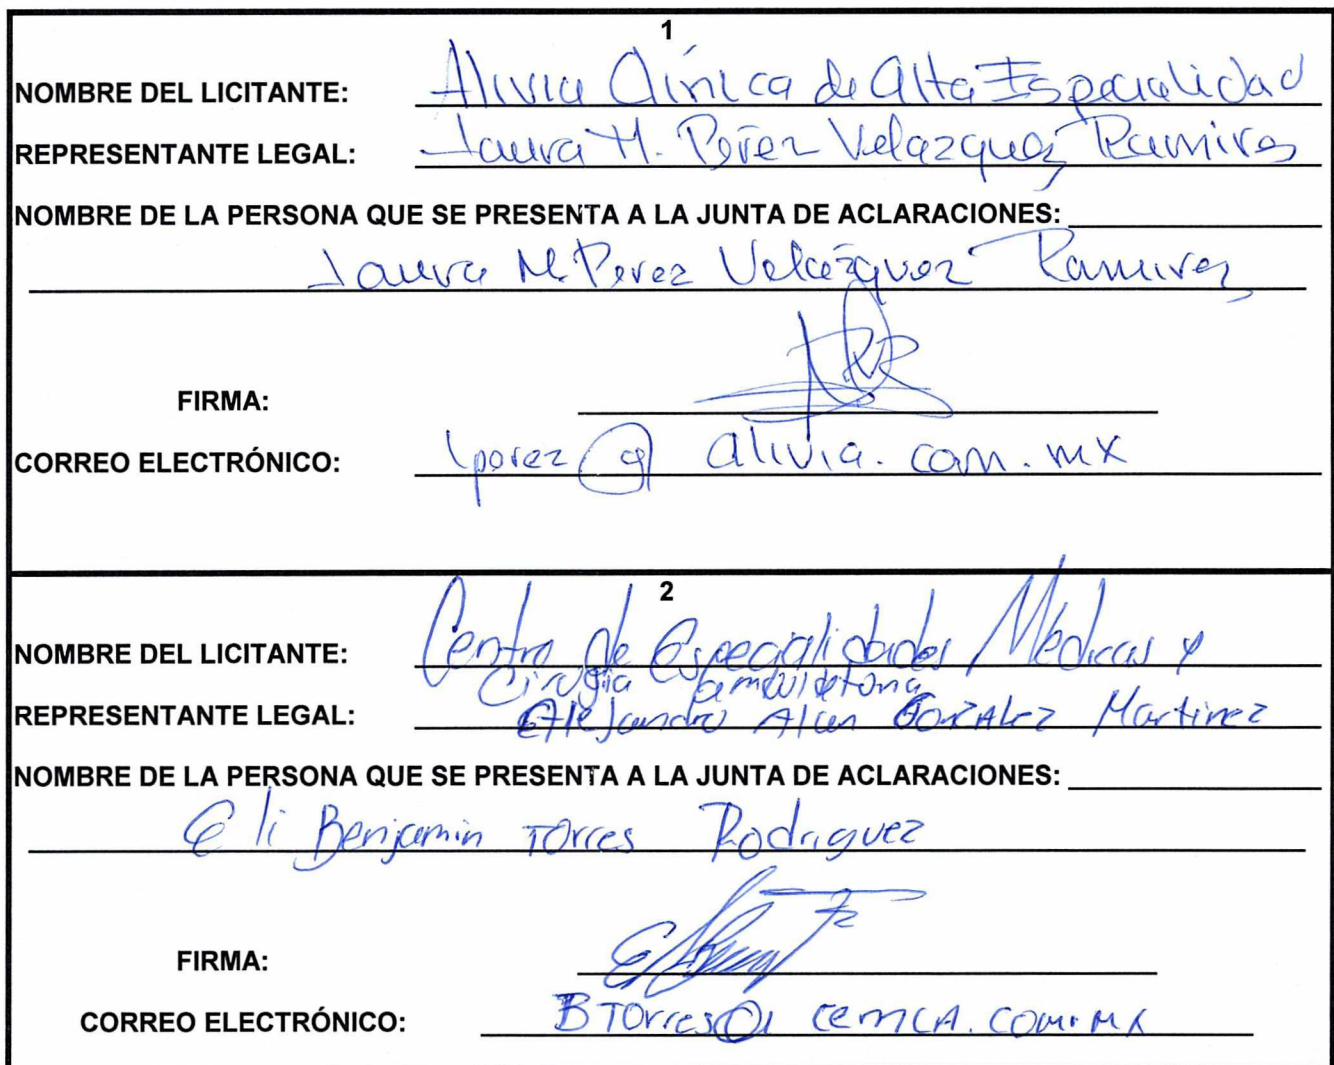 1
NOMBRE DEL LICITANTE: Alivia Clínica de Alta Especialidad
REPRESENTANTE LEGAL: Laura M. Pérez Velazquez Ramirez
NOMBRE DE LA PERSONA QUE SE PRESENTA A LA JUNTA DE ACLARACIONES:
Laura M. Perez Velázquez Ramirez
FIRMA:
CORREO ELECTRÓNICO: lperez@alivia.com.mx
2
NOMBRE DEL LICITANTE: Centro de Especialidades Médicas y
Cirugía Ambulatoria
REPRESENTANTE LEGAL: Alejandro Alan González Martinez
NOMBRE DE LA PERSONA QUE SE PRESENTA A LA JUNTA DE ACLARACIONES:
Eli Benjamin Torres Rodriguez
FIRMA:
CORREO ELECTRÓNICO: BTorres@cemCA.com.mx